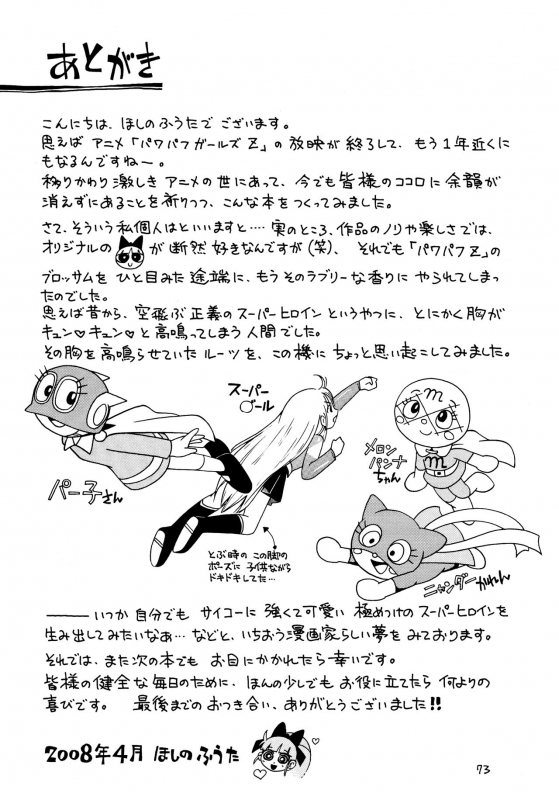 あとがき
こんにちは、ほしのふうたでございます。
思えばアニメ「パワパフガールズZ」の放映が終了して、もう1年近くに
もなるんですねー。
移りかわり激しきアニメの世にあって、今でも皆様のココロに余韻が
消えずにあることを祈りつつ、こんな本をつくってみました。
さて、そういう私個人はといいますと……実のところ、作品のノリや楽しさでは、
オリジナルの が断然好きなんですが(笑)、それでも「パワパフZ」の
ブロッサムをひと目みた途端に、もうそのラブリーな香りにやられてしまっ
たのでした。
思えば昔から、空飛ぶ正義のスーパーヒロインというやつに、とにかく胸が
キュン♡キュン♡と高鳴ってしまう人間でした。
その胸を高鳴らせていたルーツを、この機にちょっと思い起こしてみました。
スーパー
ガール
m
m
メロン
パンナ
ちゃん
パー子さん
とぶ時のこの脚の
ポーズに子供ながら
ドキドキしてた…
ニャンダーかめん
――いつか自分でもサイコーに強くて可愛い極めつけのスーパーヒロインを
生み出してみたいなあ…などと、いちおう漫画家らしい夢をみております。
それでは、また次の本でもお目にかかれたら幸いです。
皆様の健全な毎日のために、ほんの少しでもお役に立てたら何よりの
喜びです。 最後までのおつき合い、ありがとうございました!!
2008年4月 ほしのふうた
73